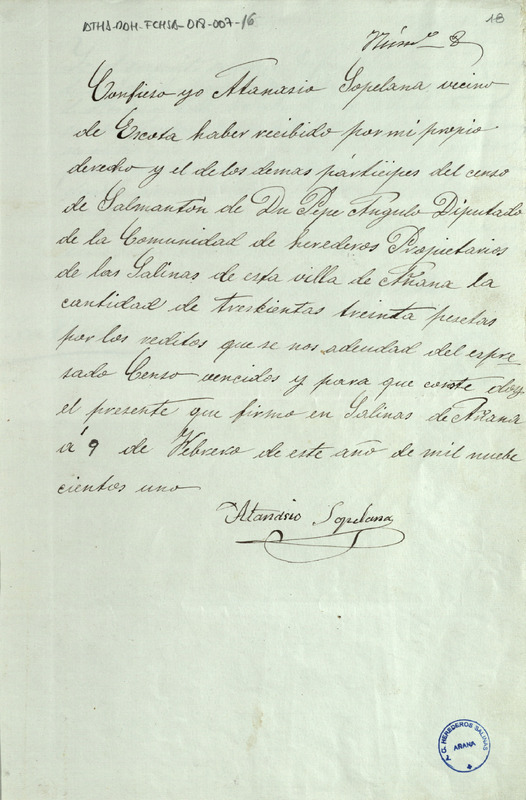 ATHA-DAH-FCHSA-018-007-16
18
Númº 8
Confieso yo Atanasio Sopelana vecino
de Escota haber recibido por mi propio
derecho y el de los demas participes del censo
de Salmantón de Dn Pepe Angulo Diputado
de la Comunidad de herederos Propietarios
de las Salinas de esta villa de Añana la
cantidad de trescientas treinta pesetas
por los reditos que se nos adeudad del espre
sado Censo vencidos y para que conste doy
el presente que firmo en Salinas de Añana
á 9 de Febrero de este año de mil nuebe
cientos uno
Atanasio Sopelana
C. HEREDEROS SALINAS
AÑANA